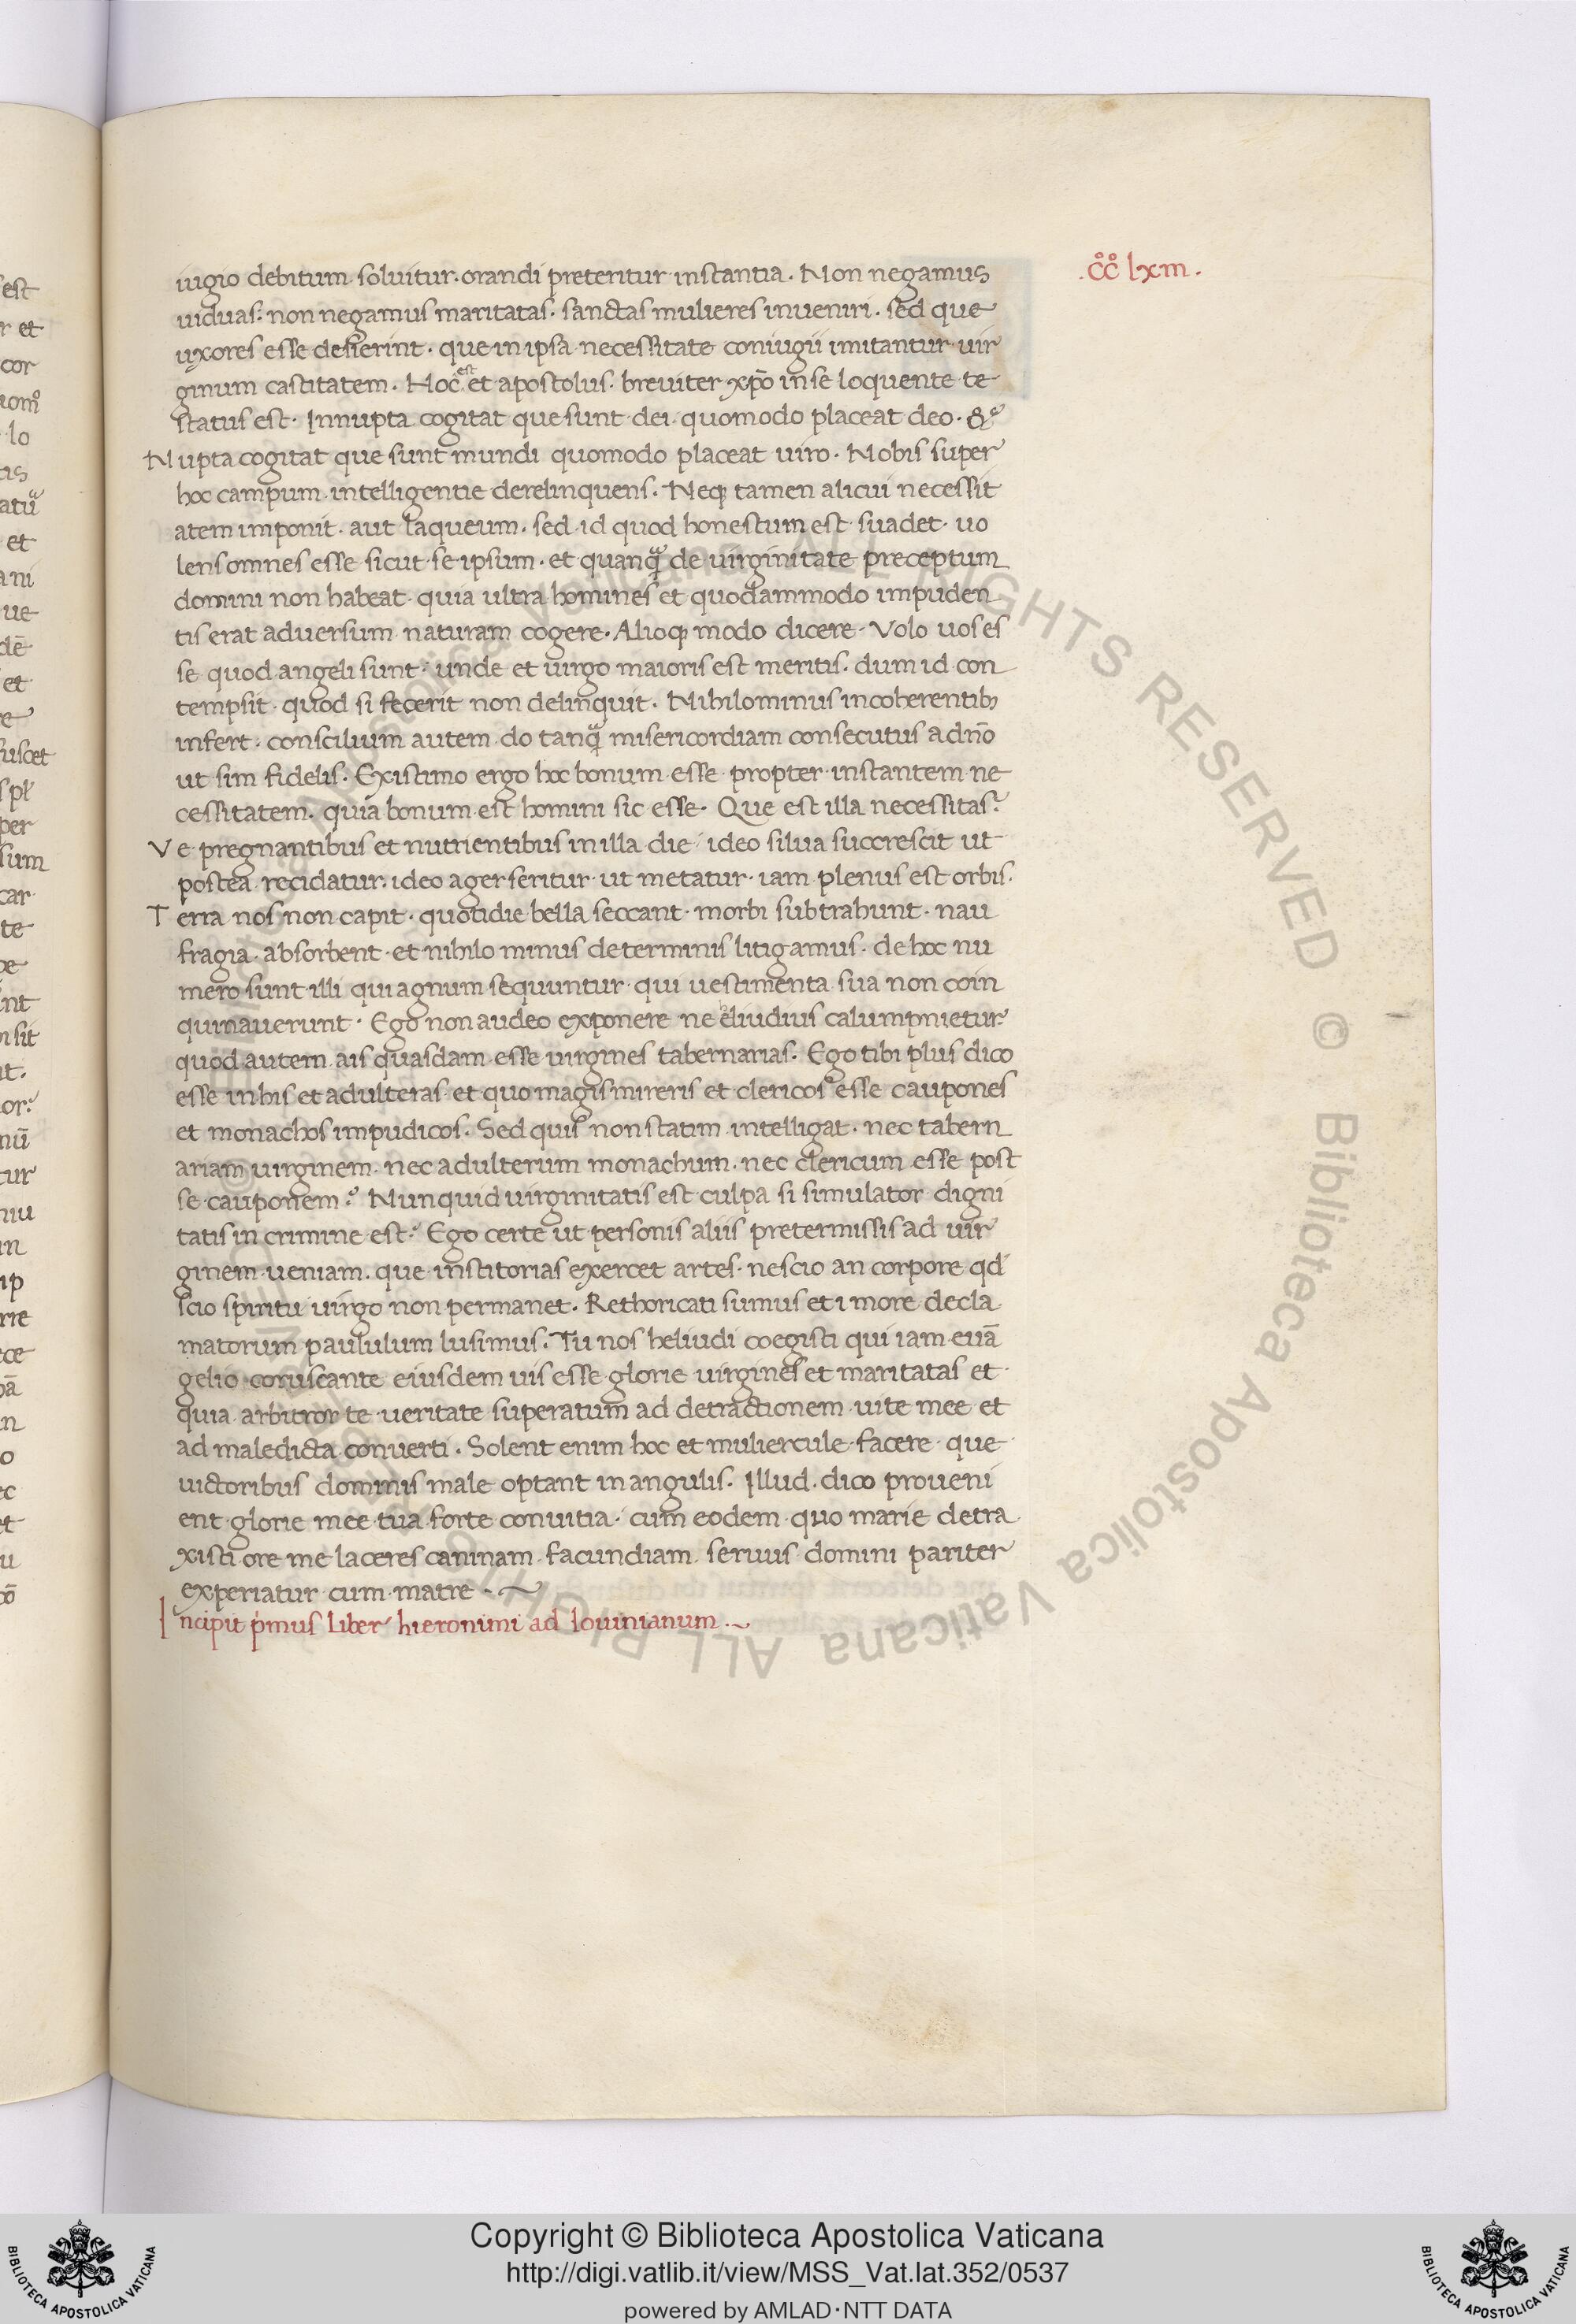 .c̊c̊ lxiii.
iugio debitum soluitur. orandi preteritur instantia. Non negamus
uiduas: non negamus maritatas. sanctas mulieres inueniri. sed que
uxores esse desierint. que in ipsa necessitate coniugii imitantur uir
ginum castitatem. Hoc est et apostolus. breuiter xp̄o in se loquente te
status est. Innupta cogitat que sunt dei. quomodo placeat deo. &
Nupta cogitat que sunt mundi quomodo placeat uiro. Nobis super
hoc campum intelligentie derelinquens. Neqꝫ tamen alicui necessit
atem imponit. aut laqueum. sed id quod honestum est suadet. uo
lens omnes esse sicut se ipsum. et quanqᷓ de uirginitate preceptum
domini non habeat. quia ultra homines et quodammodo impuden
tis erat aduersum naturam cogere. Alioqꝫ modo dicere. Volo uos es
se quod angeli sunt: unde et uirgo maioris est meritis. dum id con
tempsit. quod si fecerit non delinquit. Nihilominus in coherentibꝫ
infert. conscilium autem do tanqᷓ misericordiam consecutus a dn̄o
ut sim fidelis. Existimo ergo hoc bonum esse propter instantem ne
cessitatem. quia bonum est homini sic esse. Que est illa necessitas?
Ve pregnantibus et nutrientibus in illa die / ideo silua succrescit ut
postea recidatur. ideo ager seritur ut metatur. iam plenus est orbis.
Terra nos non capit. quotidie bella seccant. morbi subtrahunt. nau
fragia absorbent. et nihilo minus de terminis litigamus. de hoc nu
mero sunt illi qui agnum sequuntur qui uestimenta sua non coin
quinauerunt. Ego non audeo exponere ne heliudius calumpnietur:
quod autem ais quasdam esse uirgines tabernarias. Ego tibi plus dico
esse in his et adulteras et quo magis mireris et clericos esse caupones
et monachos impudicos. Sed quis non statim intelligat. nec tabern
ariam uirginem. nec adulterum monachum. nec clericum esse post
se cauponem? Nunquid uirginitatis est culpa si simulator digni
tatis in crimine est? Ego certe ut personis aliis pretermissis ad uir
ginem ueniam. que institorias exercet artes. nescio an corpore qd
scio spiritu uirgo non permanet. Rethoricati sumus et i more decla
matorum paululum lusimus. Tu nos heliudi coegisti qui iam euā
gelio coruscante eiusdem uis esse glorie uirgines et maritatas et
quia arbitror te ueritate superatum ad detractionem uite mee et
ad maledicta conuerti. Solent enim hoc et muliercule facere que
uictoribus dominis male optant in angulis. Illud dico proueni
ent glorie mee tua forte conuitia. cum eodem quo marie detra
xisti ore me laceres caninam facundiam seruus domini pariter
experiatur cum matre
Incipit pͥmus liber hieronimi ad Iouinianum
Copyright © Biblioteca Apostolica Vaticana
http://digi.vatlib.it/view/MSS_Vat.lat.352/0537
powered by AMLAD·NTT DATA